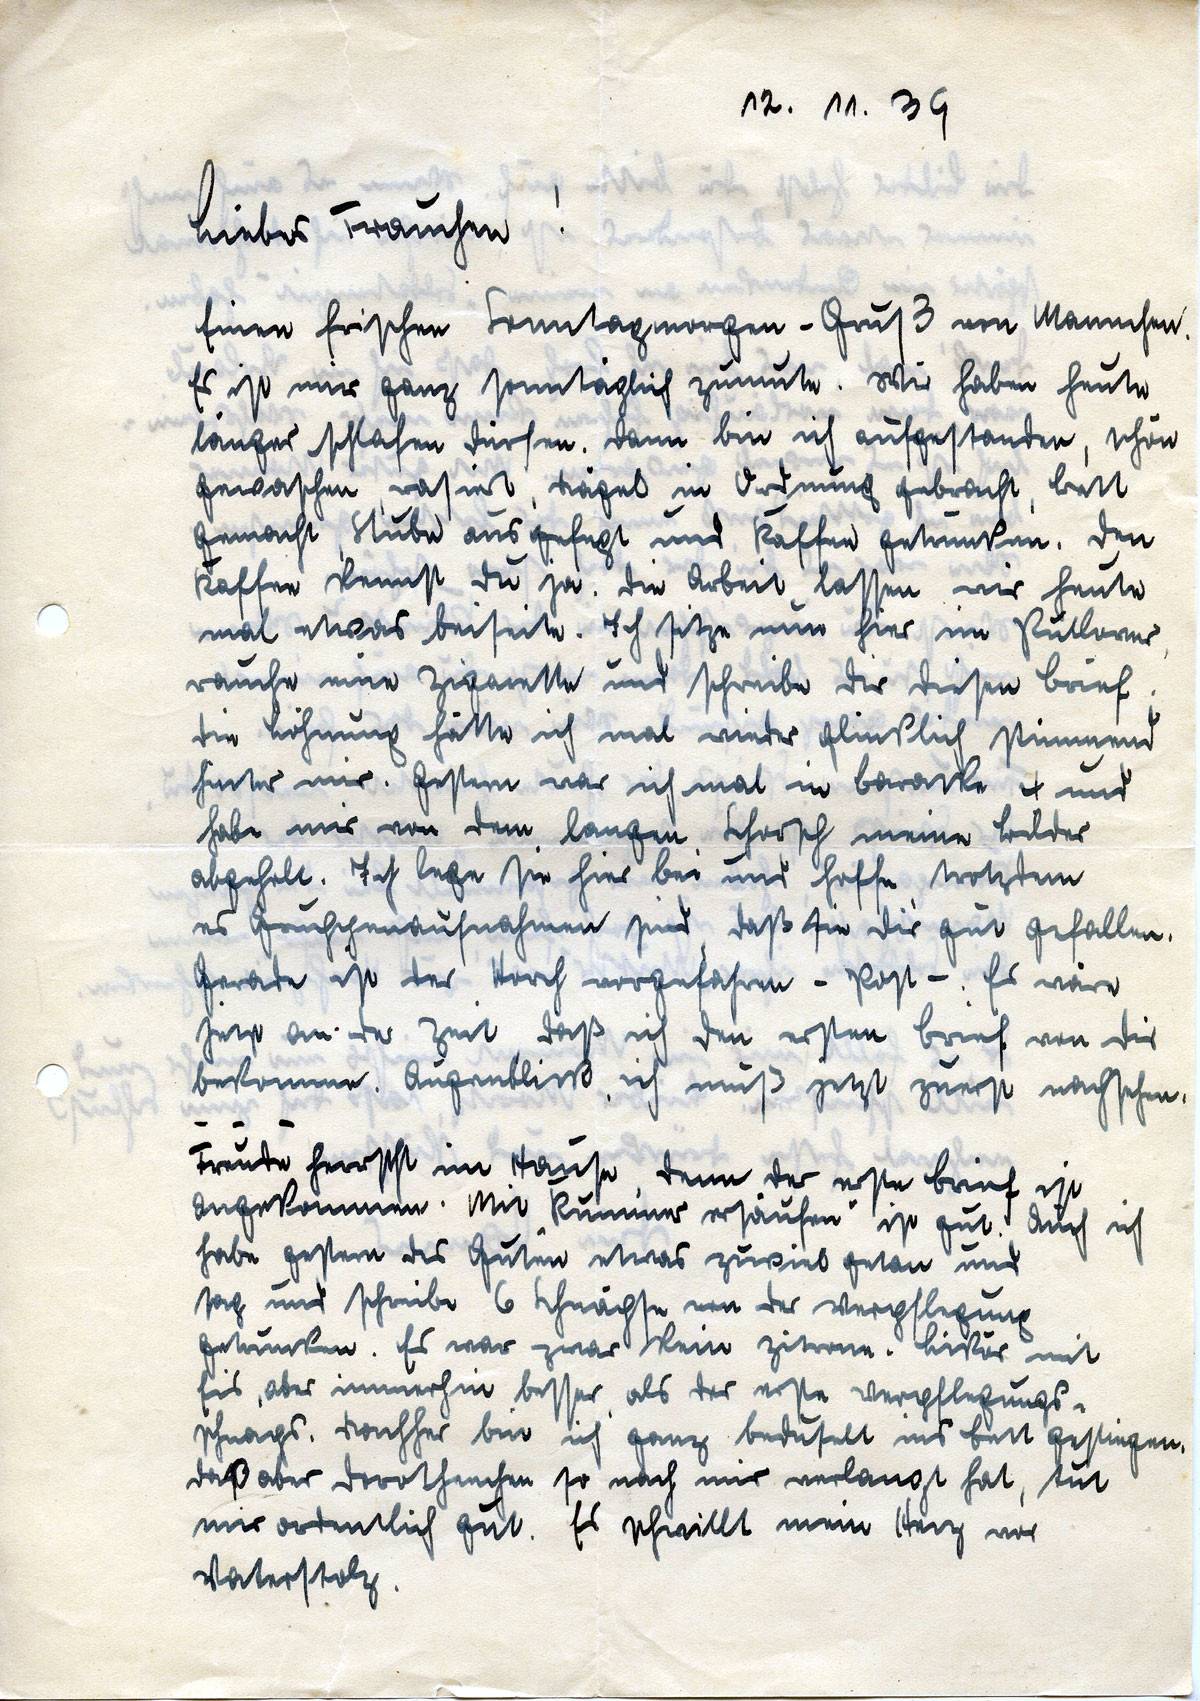 12. 11. 39
Liebes Frauchen!
Einen frischen Sonntagmorgen-Gruß von Mannchen.
Es ist mir ganz sonntäglich zumute. Wir haben heute
länger schlafen dürfen. Dann bin ich aufgestanden, schön
gewaschen, rasiert, Nägel in Ordnung gebracht, Bett
gemacht, Stube ausgefegt und Kaffee getrunken. Den
Kaffee kennst du ja. Die Arbeit lassen wir heute
mal etwas beiseite. Ich sitze nun hier im Pullover,
rauche eine Zigarette und schreibe dir diesen Brief.
Die Löhnung hätte ich mal wieder glücklich stimmend
hinter mir. Gestern war ich mal in Baracke 4 und
habe mir von dem langen Schorsch meine Bilder
abgeholt. Ich lege sie hier bei und hoffe, trotzdem
es Gruppenaufnahmen sind, daß sie dir gut gefallen.
Gerade ist der Horch vorgefahren - Post -. Es wäre
jetzt an der Zeit daß ich den ersten Brief von dir
bekomme. Augenblick, ich muß jetzt zuerst nachsehen.
- - -
Freude herrscht im Hause, denn der erste Brief ist
angekommen. Mit "Kummer ersäufen" ist gut. Auch ich
habe gestern des Guten etwas zuviel getan und
sag und schreibe 6 Schnäpse von der Verpflegung
getrunken. Es war zwar kein Zitrone-Likör mit
Eis, aber immerhin besser als der erste Verpflegungs-
schnaps. Nachher bin ich ganz beduselt ins Bett gestiegen.
Daß aber Dorotheechen so nach mir verlangt hat, tut
mir ordentlich gut. Es schwillt mein Herz vor
Vaterstolz.